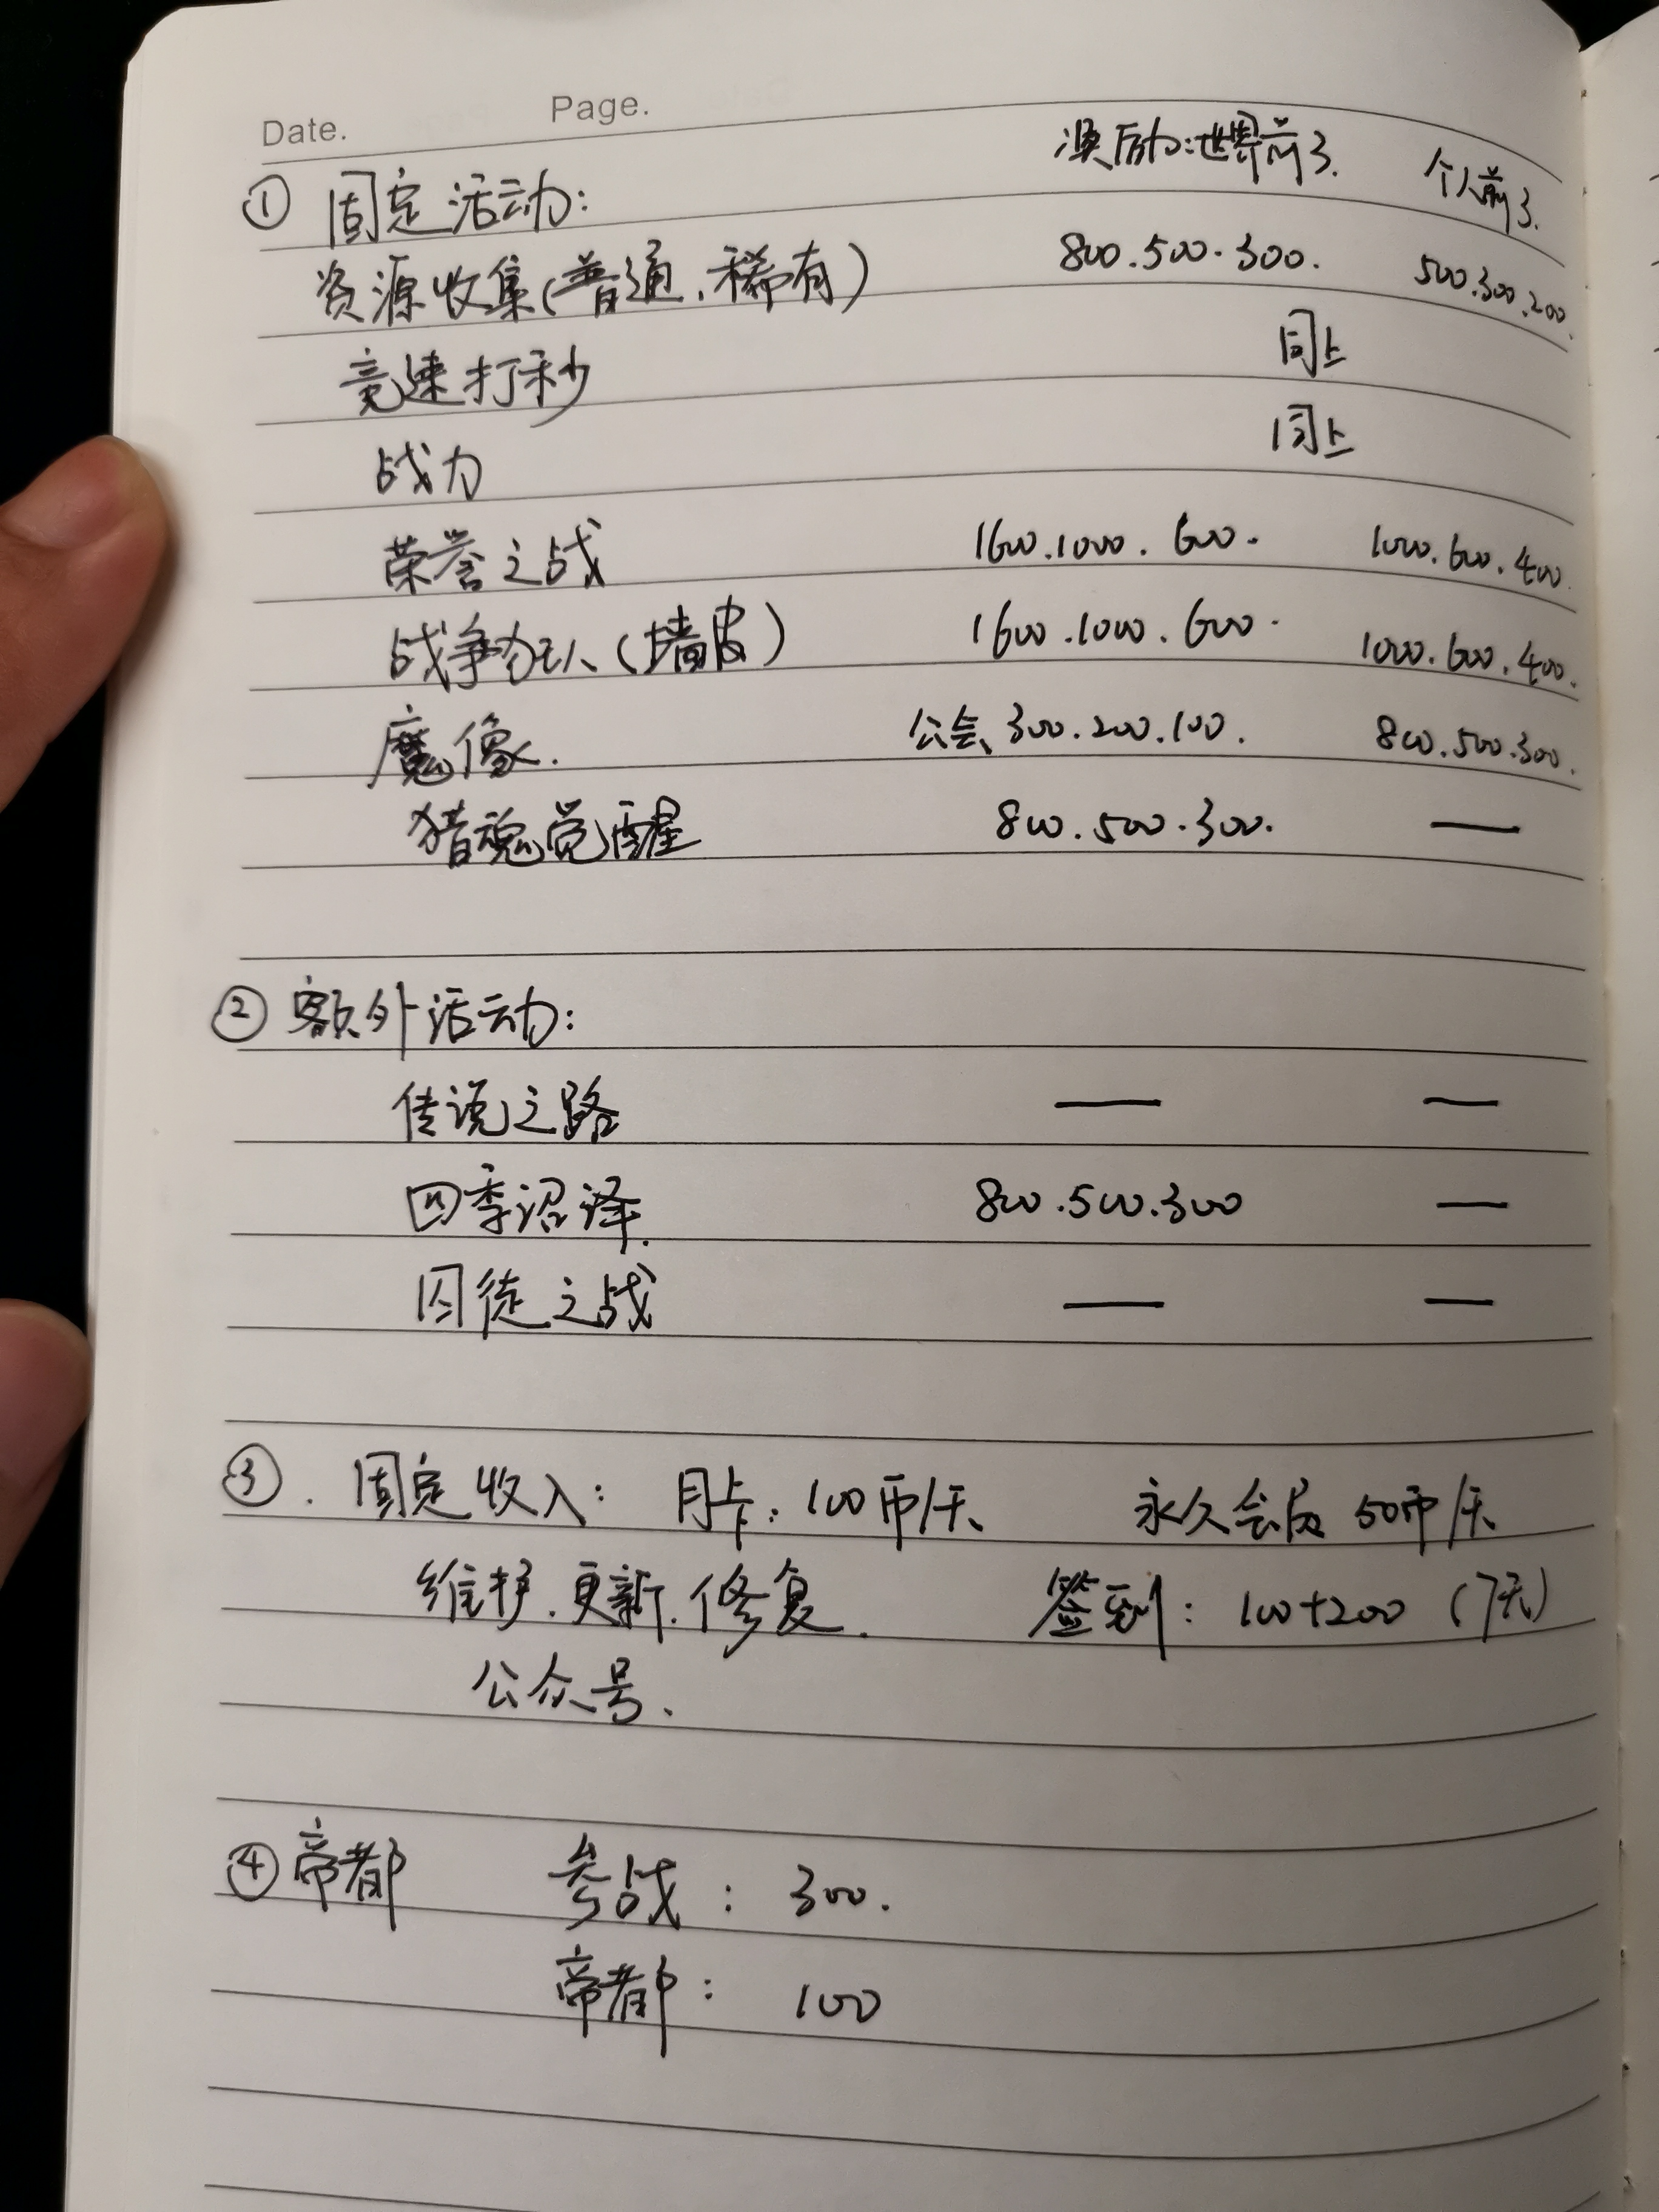 Date. Page.
奖励:世界前3. 个人前3.
① 固定活动:
资源收集(普通、稀有) 800.500.300. 500.300.200.
竞速打秒 同上
战力 同上
荣誉之战 1600.1000.600. 1000.600.400.
战争狂人(墙皮) 1600.1000.600. 1000.600.400.
魔像. 公会、300.200.100. 800.500.300.
猎魂觉醒 800.500.300. —
② 额外活动:
传说之路 — —
四季沼泽. 800.500.300 —
囚徒之战 — —
③. 固定收入: 月卡:100币/天 永久会员 50币/天
维护.更新.修复. 签到: 100+200 (7天)
公众号.
④ 帝都 参战: 300.
帝都: 100